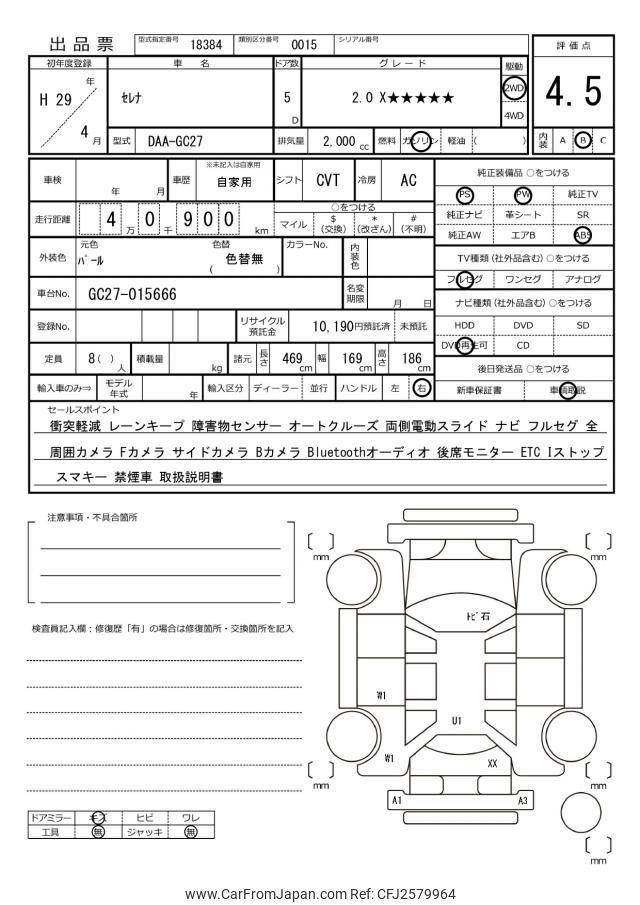 出品票 型式指定番号 18384 類別区分番号 0015 シリアル番号
評価点
4.5
内装 A B C
初年度登録 車名 ドア数 グレード 駆動
H 29 年 4 月
セレナ 5 D 2.0 X★★★★★ 2WD
4WD
型式 DAA-GC27 排気量 2,000 cc 燃料 ガソリン 軽油 ( )
車検 年 月 車歴 ※未記入は自家用 自家用 シフト CVT 冷房 AC
走行距離 4 万 0 千 9 0 0 km
○をつける
マイル $ (交換) * (改ざん) # (不明)
外装色 元色 パール 色替 ( 色替無 ) カラーNo. 内装色
車台No. GC27-015666 名変期限 月 日
登録No. リサイクル預託金 10,190円預託済 未預託
定員 8( ) 人 積載量 kg 諸元 長さ 469 cm 幅 169 cm 高さ 186 cm
輸入車のみ⇒ モデル年式 年 輸入区分 ディーラー 並行 ハンドル 左 右
純正装備品 ○をつける
PS PW 純正TV
純正ナビ 革シート SR
純正AW エアB ABS
TV種類 (社外品含む) ○をつける
フルセグ ワンセグ アナログ
ナビ種類 (社外品含む) ○をつける
HDD DVD SD
DVD再生可 CD
後日発送品 ○をつける
新車保証書 車輌取説
セールスポイント
衝突軽減 レーンキープ 障害物センサー オートクルーズ 両側電動スライド ナビ フルセグ 全
周囲カメラ Fカメラ サイドカメラ Bカメラ Bluetoothオーディオ 後席モニター ETC Iストップ
スマキー 禁煙車 取扱説明書
注意事項・不具合箇所
検査員記入欄：修復歴「有」の場合は修復箇所・交換箇所を記入
mm
mm
トビ石
W1
U1
W1
XX
mm
mm
A1
A3
mm
ドアミラー キズ ヒビ ワレ
工具 無 ジャッキ 無
www.CarFromJapan.com Ref: CFJ2579964